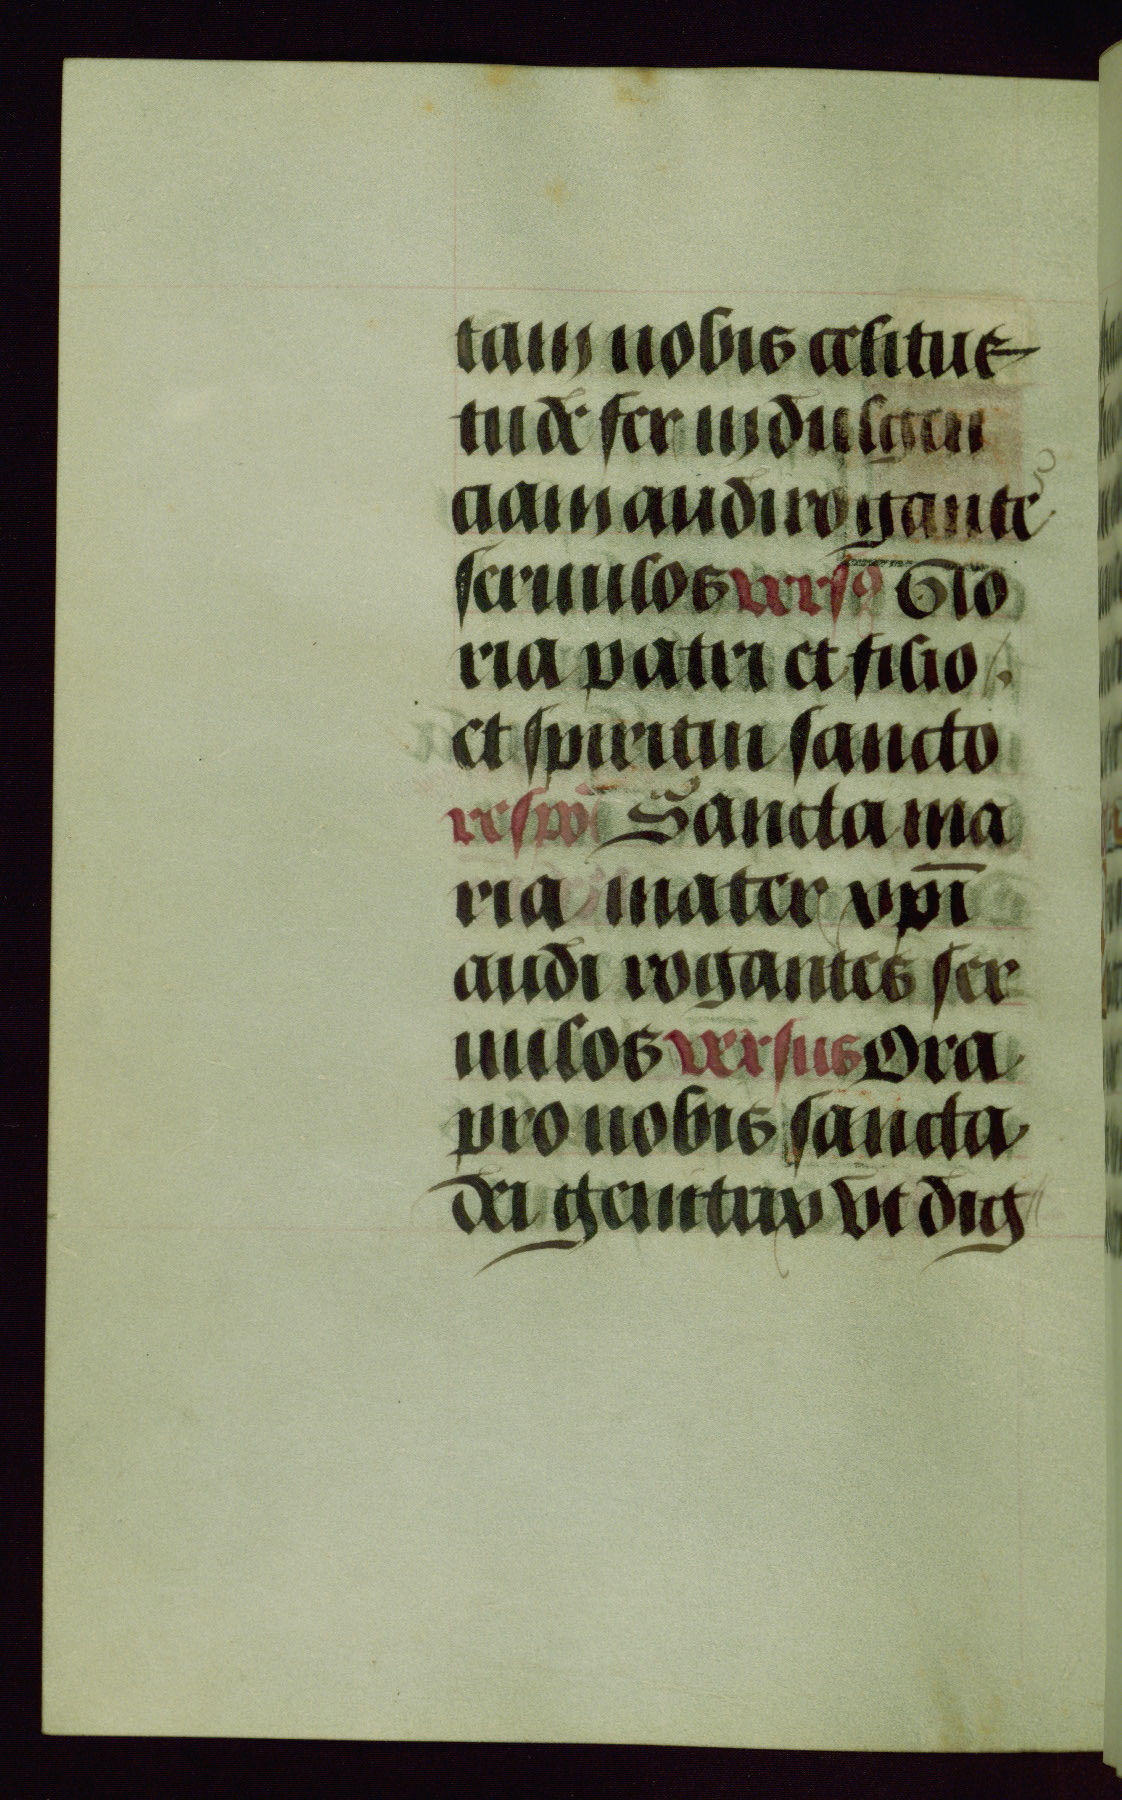 tam nobis celitue
tu de fer indulgen
ciam audi rogante
seruulos verso Glo
ria patri et filio
et spiritui sancto
respo Sancta ma
ria mater xpi
audi rogantes ser
uulos versus Ora
pro nobis sancta
dei genitrix vt dig